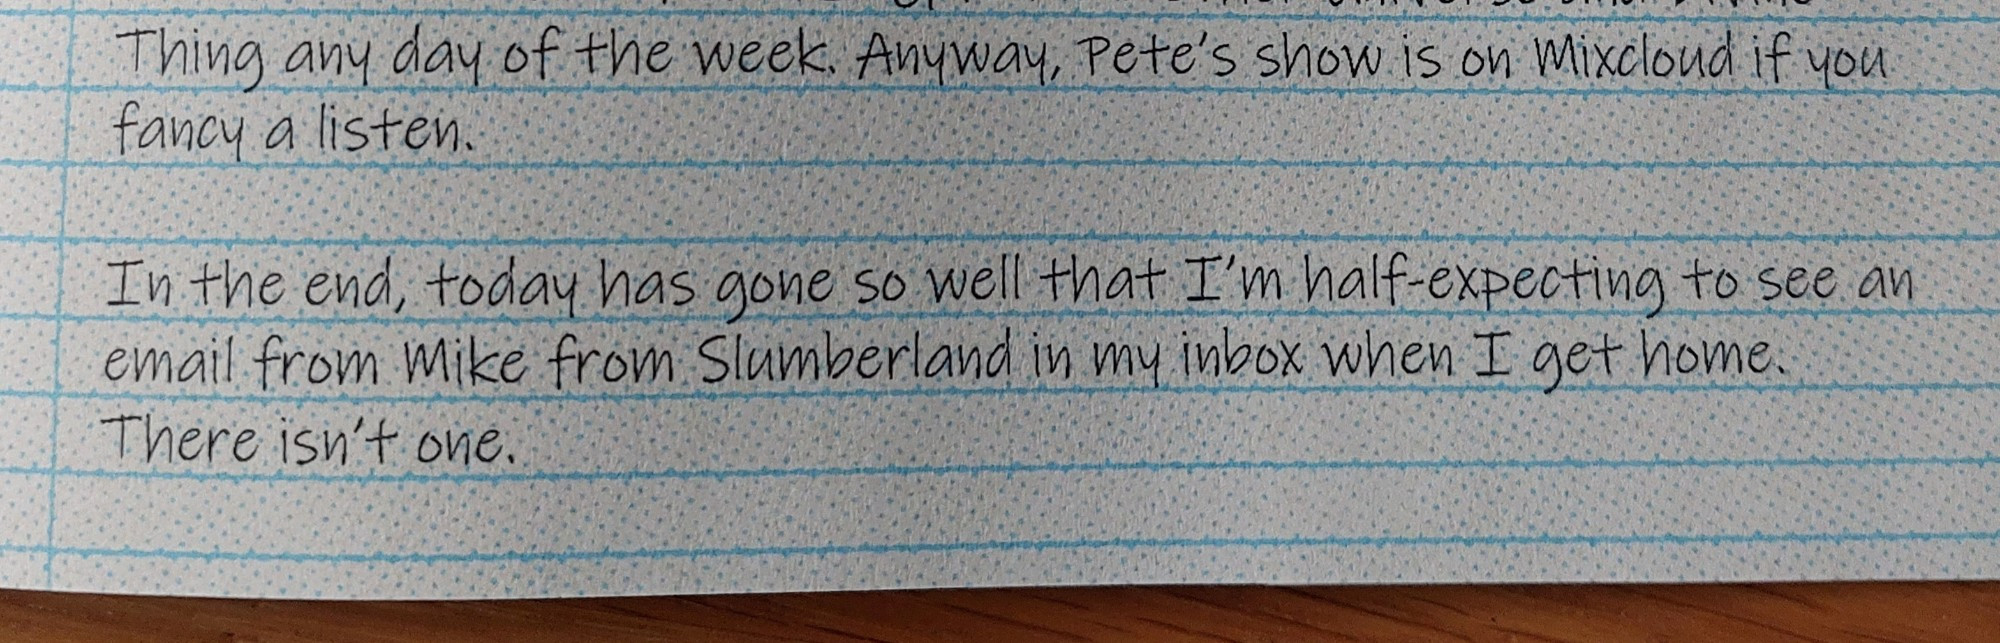 Thing any day of the week. Anyway, Pete's show is on Mixcloud if you
fancy a listen.
In the end, today has gone so well that I'm half-expecting to see an
email from Mike from Slumberland in my inbox when I get home.
There isn't one.